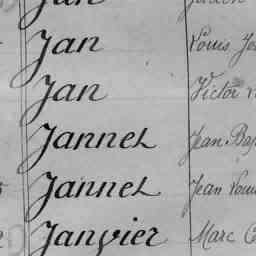 Jan
Jan Louis
Jan Victor
Jannet Jean
Jannet Jean
Janvier Marc